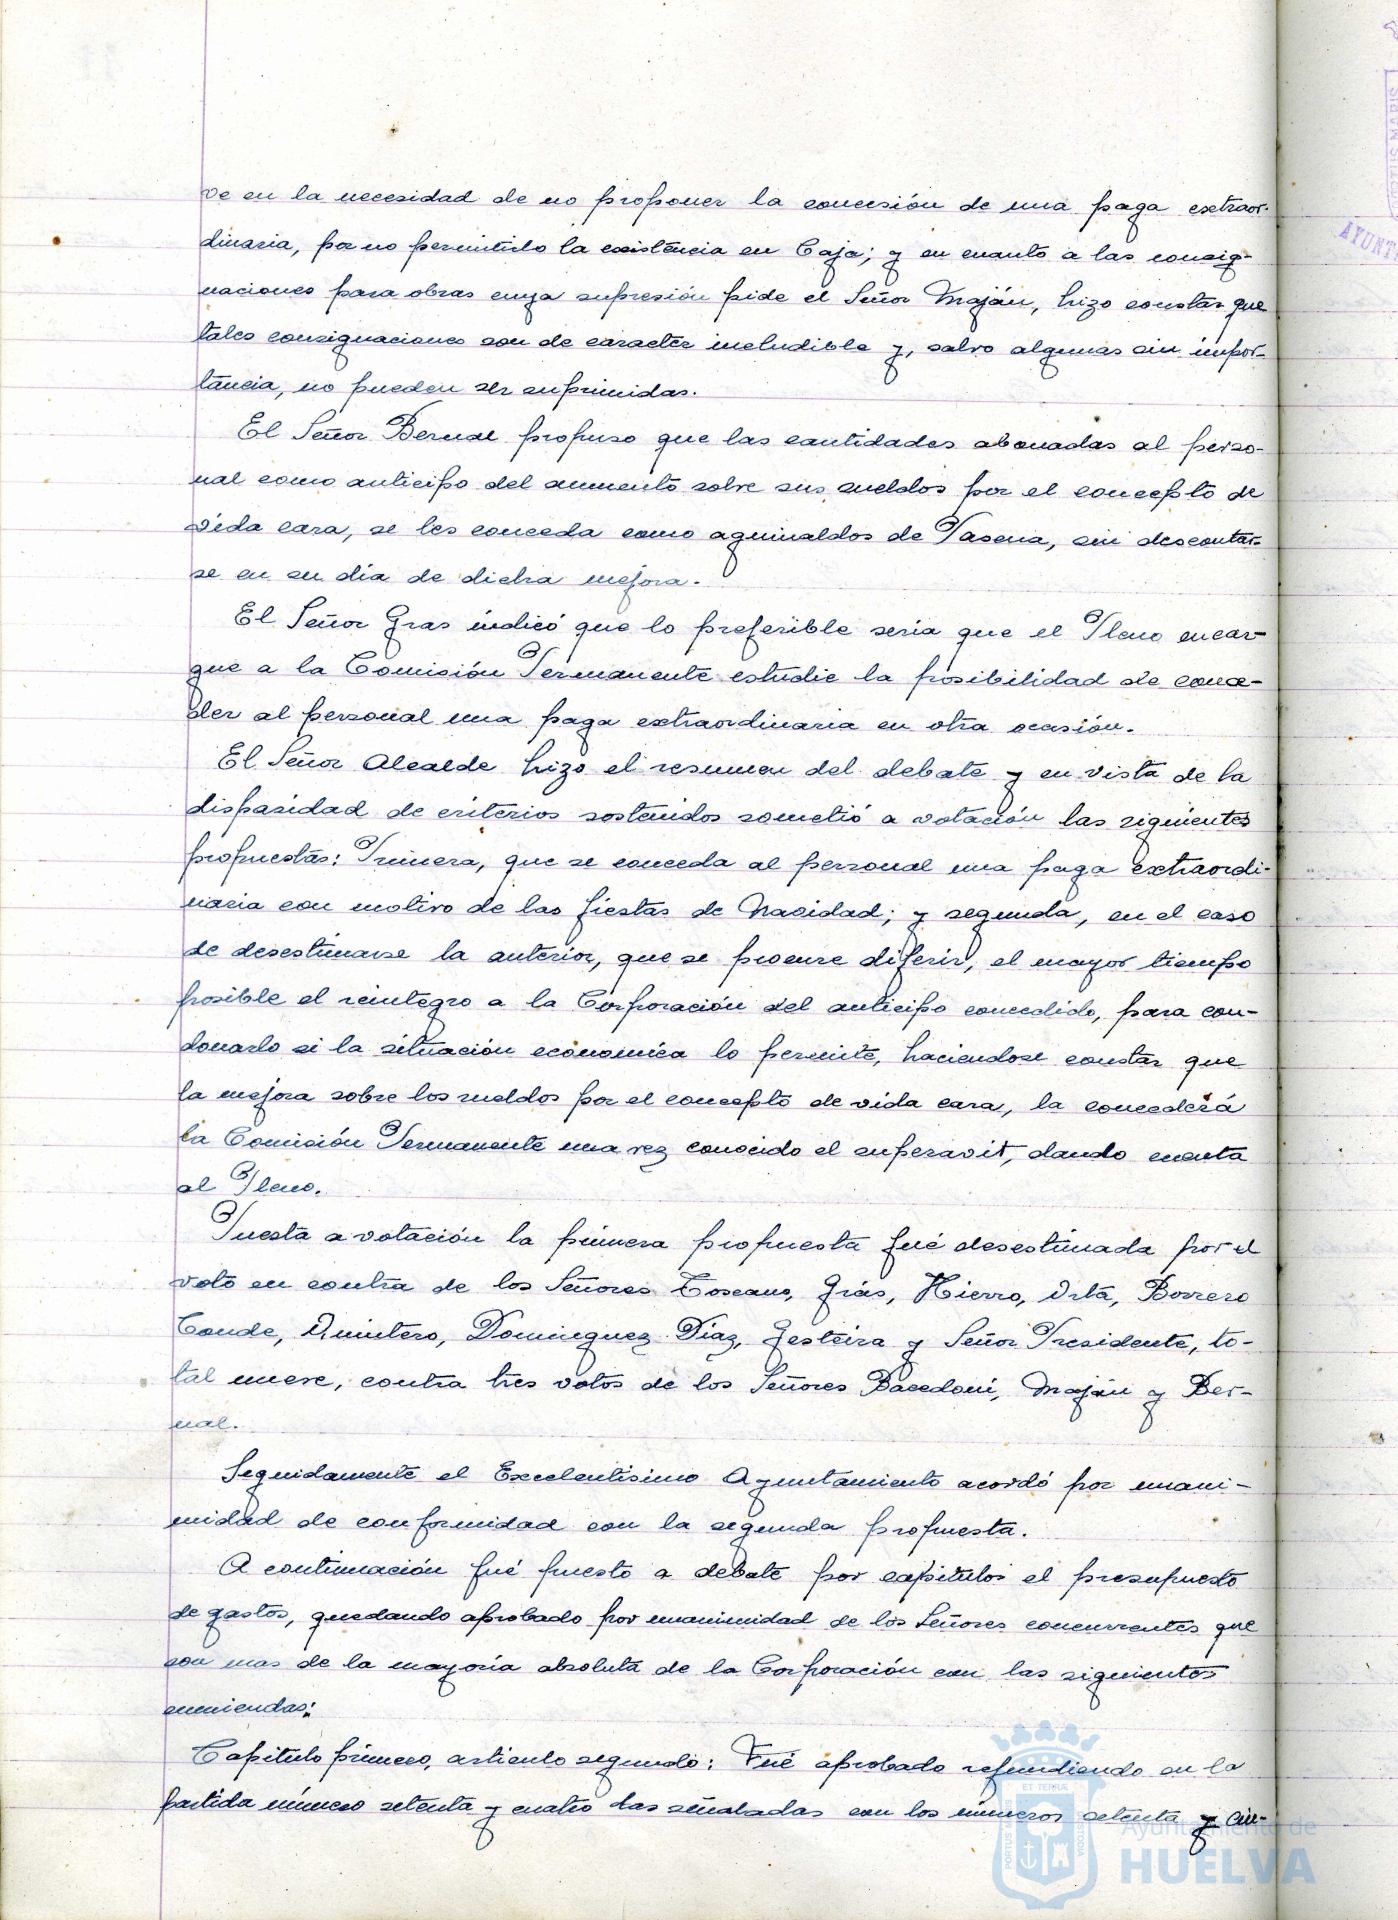 ve en la necesidad de no proponer la concesión de una paga extraor-
dinaria, por no permitirlo la existencia en Caja; y en cuanto a las consig-
naciones para obras cuya supresión pide el Señor Maján, hizo constar que
tales consignaciones son de caracter ineludible y, salvo algunas sin impor-
tancia, no pueden ser suprimidas.
El Señor Bernal propuso que las cantidades abonadas al perso-
nal como anticipo del aumento sobre sus sueldos por el concepto de
vida cara, se les conceda como aguinaldos de Pascua, sin descontar-
se en su dia de dicha mejora.
El Señor Gras indicó que lo preferible seria que el Pleno encar-
gue a la Comisión Permanente estudie la posibilidad de conce-
der al personal una paga extraordinaria en otra ocasión.
El Señor Alcalde hizo el resumen del debate y en vista de la
disparidad de criterios sostenidos sometió a votación las siguientes
propuestas: Primera, que se conceda al personal una paga extraordi-
naria con motivo de las fiestas de Navidad; y segunda, en el caso
de desestimarse la anterior, que se procure diferir, el mayor tiempo
posible el reintegro a la Corporación del anticipo concedido, para con-
donarlo si la situación economica lo permite, haciendose constar que
la mejora sobre los sueldos por el concepto de vida cara, la concederá
la Comisión Permanente una vez conocido el superavit, dando cuenta
al Pleno.
Puesta a votación la primera propuesta fué desestimada por el
voto en contra de los Señores Toscano, Grás, Hierro, Orta, Borrero
Conde, Quintero, Dominguez Diaz, Gesteira y Señor Presidente, to-
tal nueve, contra tres votos de los Señores Bacedoni, Maján y Ber-
nal.
Seguidamente el Excelentisimo Ayuntamiento acordó por unani-
midad de conformidad con la segunda propuesta.
A continuación fué puesto a debate por capitulos el presupuesto
de gastos, quedando aprobado por unanimidad de los Señores concurrentes que
son mas de la mayoria absoluta de la Corporación con las siguientes
enmiendas:
Capitulo primero, articulo segundo: Fué aprobado refundiendo en la
partida número setenta y cuatro las señaladas con los números setenta y cin-
Ayuntamiento de
HUELVA